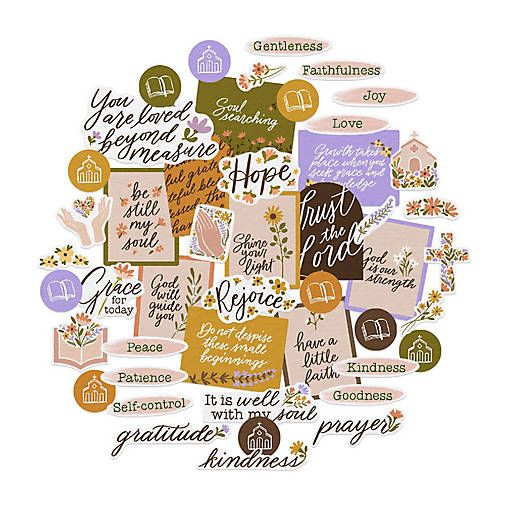 Gentleness
Faithfulness
Joy
Love
You
are loved
beyond
measure
Soul
searching
Growth takes
place when you
seek grace and
Hope
be
still
my
soul
Trust
the
Lord
Shine
your
light
God
is our
strength
Grace
for
today
God
will
guide
you
Rejoice
Do not despise
these small
beginnings
have a
little
faith
Peace
Patience
Self-control
Kindness
Goodness
It is well
with my soul
gratitude
prayer
kindness